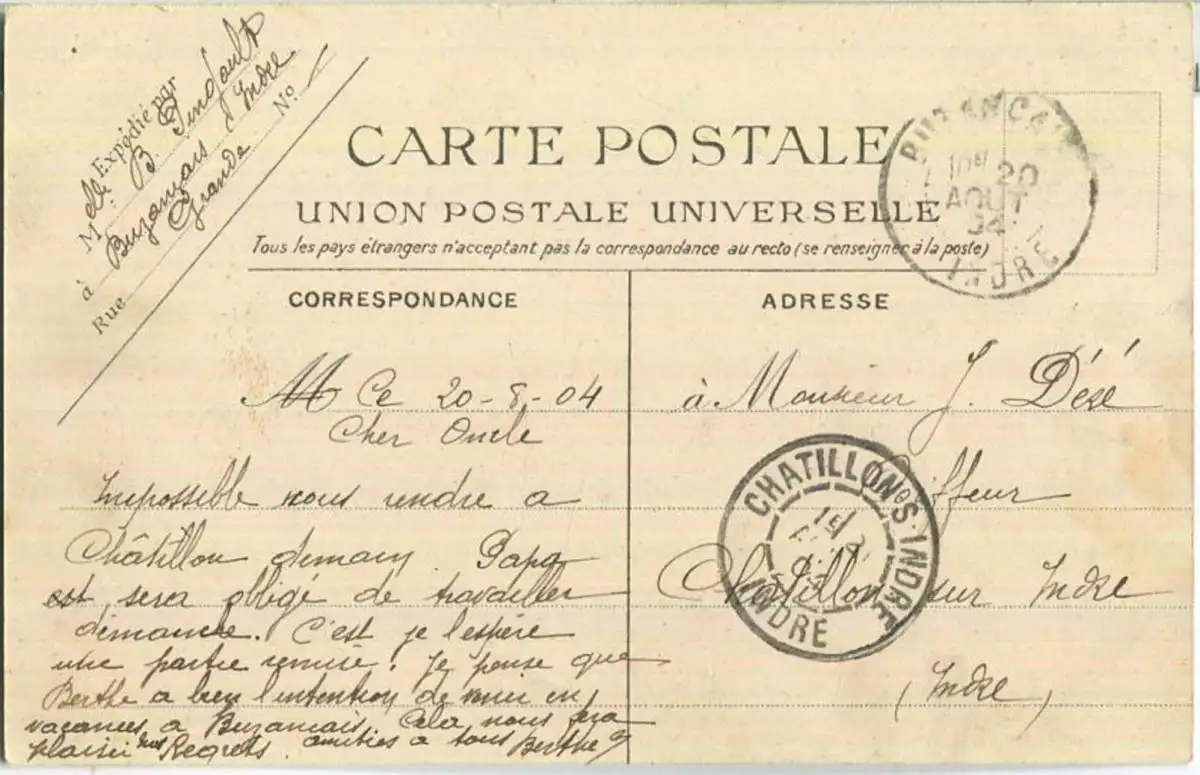 Expédié par
Melle B. Pingault
à Buzançais Indre
Rue Grande No
CARTE POSTALE
UNION POSTALE UNIVERSELLE
Tous les pays étrangers n'acceptant pas la correspondance au recto (se renseigner à la poste)
BUZANÇAIS
20
AOUT
04
INDRE
CORRESPONDANCE
ADRESSE
Ce 20-8-04
Cher Oncle
Impossible nous rendre a
Châtillon demain Papa
est sera obligé de travailler
dimanche. C'est je l'espère
une partie remise. Je pense que
Berthe a bien l'intention de venir en
vacances a Buzancais. Cela nous fera
plaisir Regrets amitiés a tous Berthe
à Monsieur J. Désé
Coiffeur
Chatillon sur Indre
(Indre)
CHATILLON-S-INDRE
INDRE